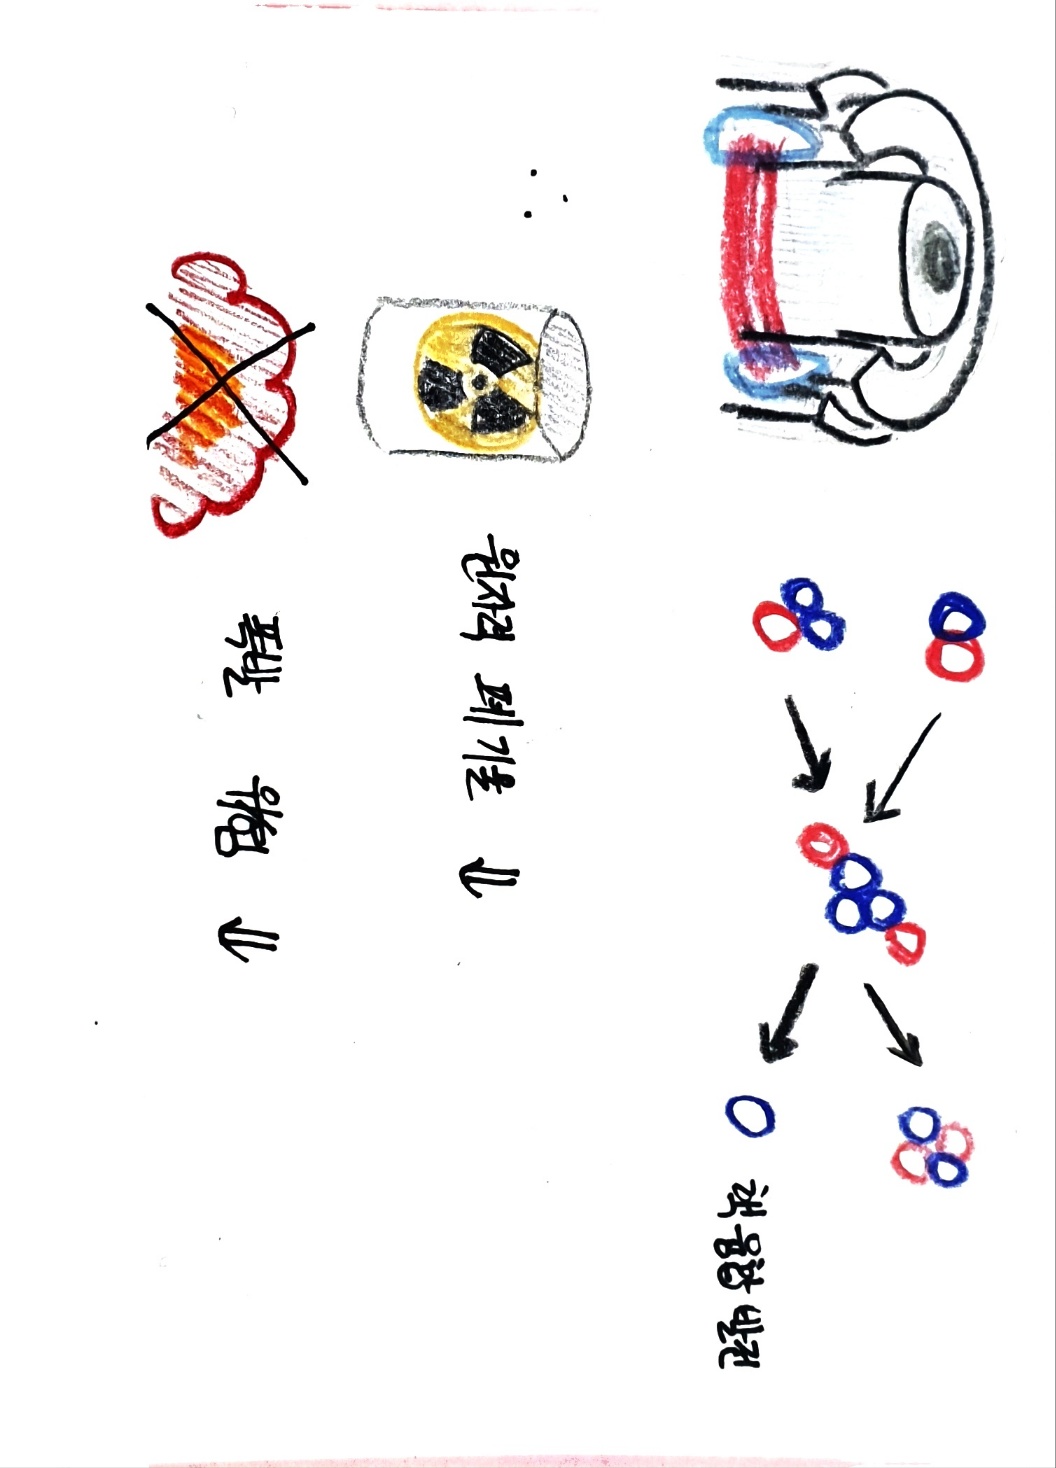 핵융합 발전
원자력 폐기물 ↓
폭발 위험 ↓